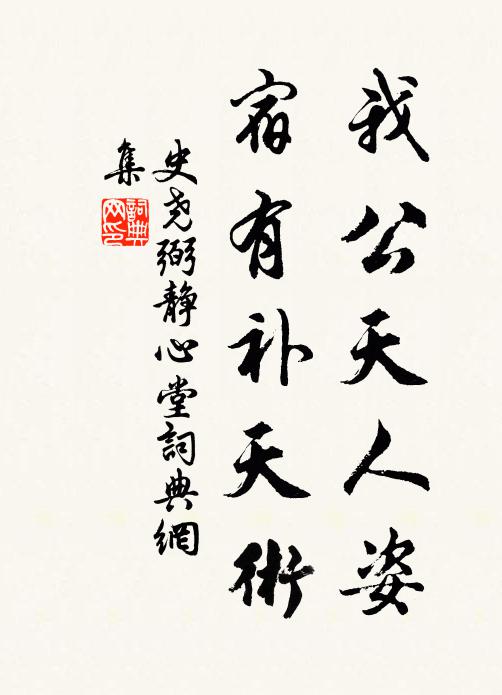 我公天人姿
宿有补天術
史尧弼静心堂詞典網
集
詞典
网印